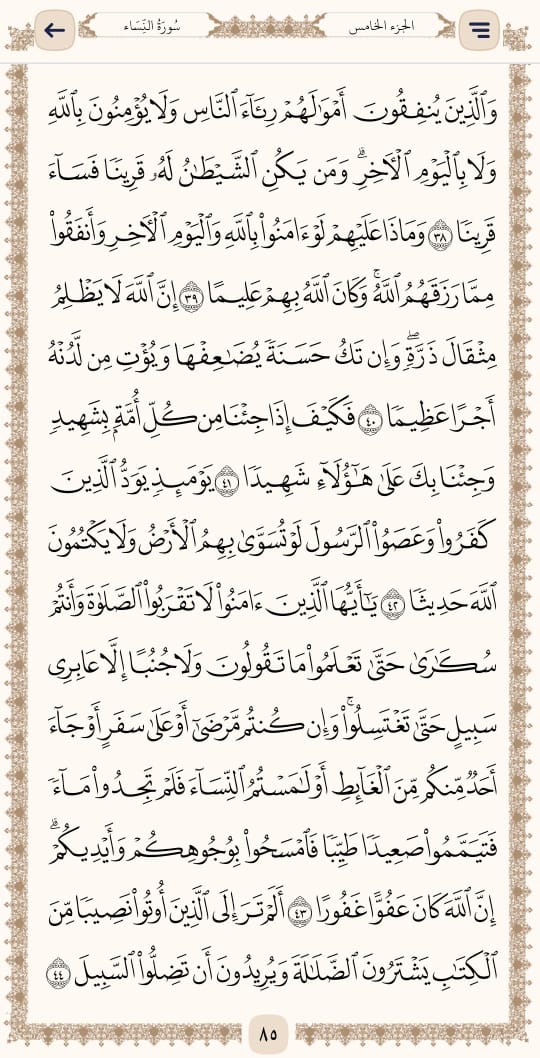 الجزء الخامس
سُورَةُ النِّسَاء
وَٱلَّذِينَ يُنفِقُونَ أَمْوَٰلَهُمْ رِئَآءَ ٱلنَّاسِ وَلَا يُؤْمِنُونَ بِٱللَّهِ
وَلَا بِٱلْيَوْمِ ٱلْأَخِرِۗ وَمَن يَكُنِ ٱلشَّيْطَٰنُ لَهُۥ قَرِينًا فَسَآءَ
قَرِينًا ٣٨ وَمَاذَا عَلَيْهِمْ لَوْ ءَامَنُوا۟ بِٱللَّهِ وَٱلْيَوْمِ ٱلْأَخِرِ وَأَنفَقُوا۟
مِمَّا رَزَقَهُمُ ٱللَّهُۚ وَكَانَ ٱللَّهُ بِهِمْ عَلِيمًا ٣٩ إِنَّ ٱللَّهَ لَا يَظْلِمُ
مِثْقَالَ ذَرَّةٍۖ وَإِن تَكُ حَسَنَةً يُضَٰعِفْهَا وَيُؤْتِ مِن لَّدُنْهُ
أَجْرًا عَظِيمًا ٤٠ فَكَيْفَ إِذَا جِئْنَا مِن كُلِّ أُمَّةٍۭ بِشَهِيدٍ
وَجِئْنَا بِكَ عَلَىٰ هَٰٓؤُلَآءِ شَهِيدًا ٤١ يَوْمَئِذٍ يَوَدُّ ٱلَّذِينَ
كَفَرُوا۟ وَعَصَوُا۟ ٱلرَّسُولَ لَوْ تُسَوَّىٰ بِهِمُ ٱلْأَرْضُ وَلَا يَكْتُمُونَ
ٱللَّهَ حَدِيثًا ٤٢ يَٰٓأَيُّهَا ٱلَّذِينَ ءَامَنُوا۟ لَا تَقْرَبُوا۟ ٱلصَّلَوٰةَ وَأَنتُمْ
سُكَٰرَىٰ حَتَّىٰ تَعْلَمُوا۟ مَا تَقُولُونَ وَلَا جُنُبًا إِلَّا عَابِرِى
سَبِيلٍ حَتَّىٰ تَغْتَسِلُوا۟ۚ وَإِن كُنتُم مَّرْضَىٰٓ أَوْ عَلَىٰ سَفَرٍ أَوْ جَآءَ
أَحَدٌ مِّنكُم مِّنَ ٱلْغَآئِطِ أَوْ لَٰمَسْتُمُ ٱلنِّسَآءَ فَلَمْ تَجِدُوا۟ مَآءً
فَتَيَمَّمُوا۟ صَعِيدًا طَيِّبًا فَٱمْسَحُوا۟ بِوُجُوهِكُمْ وَأَيْدِيكُمْۗ
إِنَّ ٱللَّهَ كَانَ عَفُوًّا غَفُورًا ٤٣ أَلَمْ تَرَ إِلَى ٱلَّذِينَ أُوتُوا۟ نَصِيبًا مِّنَ
ٱلْكِتَٰبِ يَشْتَرُونَ ٱلضَّلَٰلَةَ وَيُرِيدُونَ أَن تَضِلُّوا۟ ٱلسَّبِيلَ ٤٤
٨٥